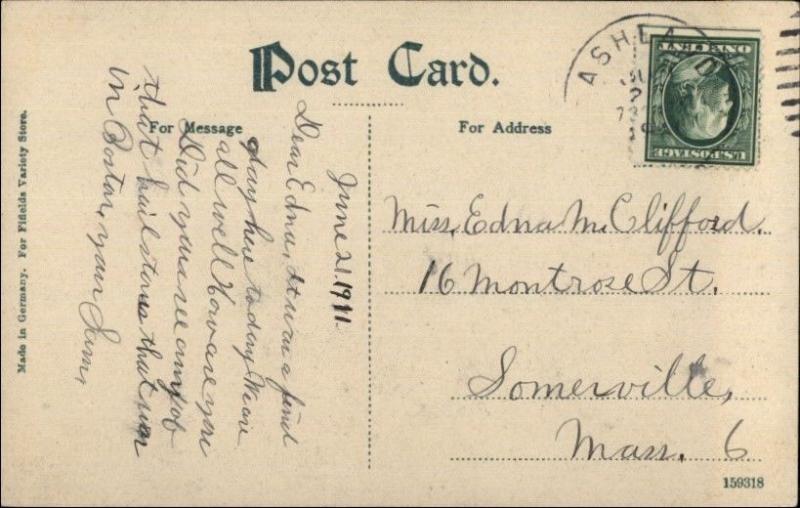 Post Card.
For Message
For Address
ASHLAND
U.S. POSTAGE
June 21, 1911.
Dear Edna, It is a find
day here today. We are
all well How are you
Did you see any of
that hail storm that was
in Boston, your
Miss, Edna M. Clifford.
16 Montrose St.
Somerville,
Mass. 6
Made in Germany. For Fifields Variety Store.
159318